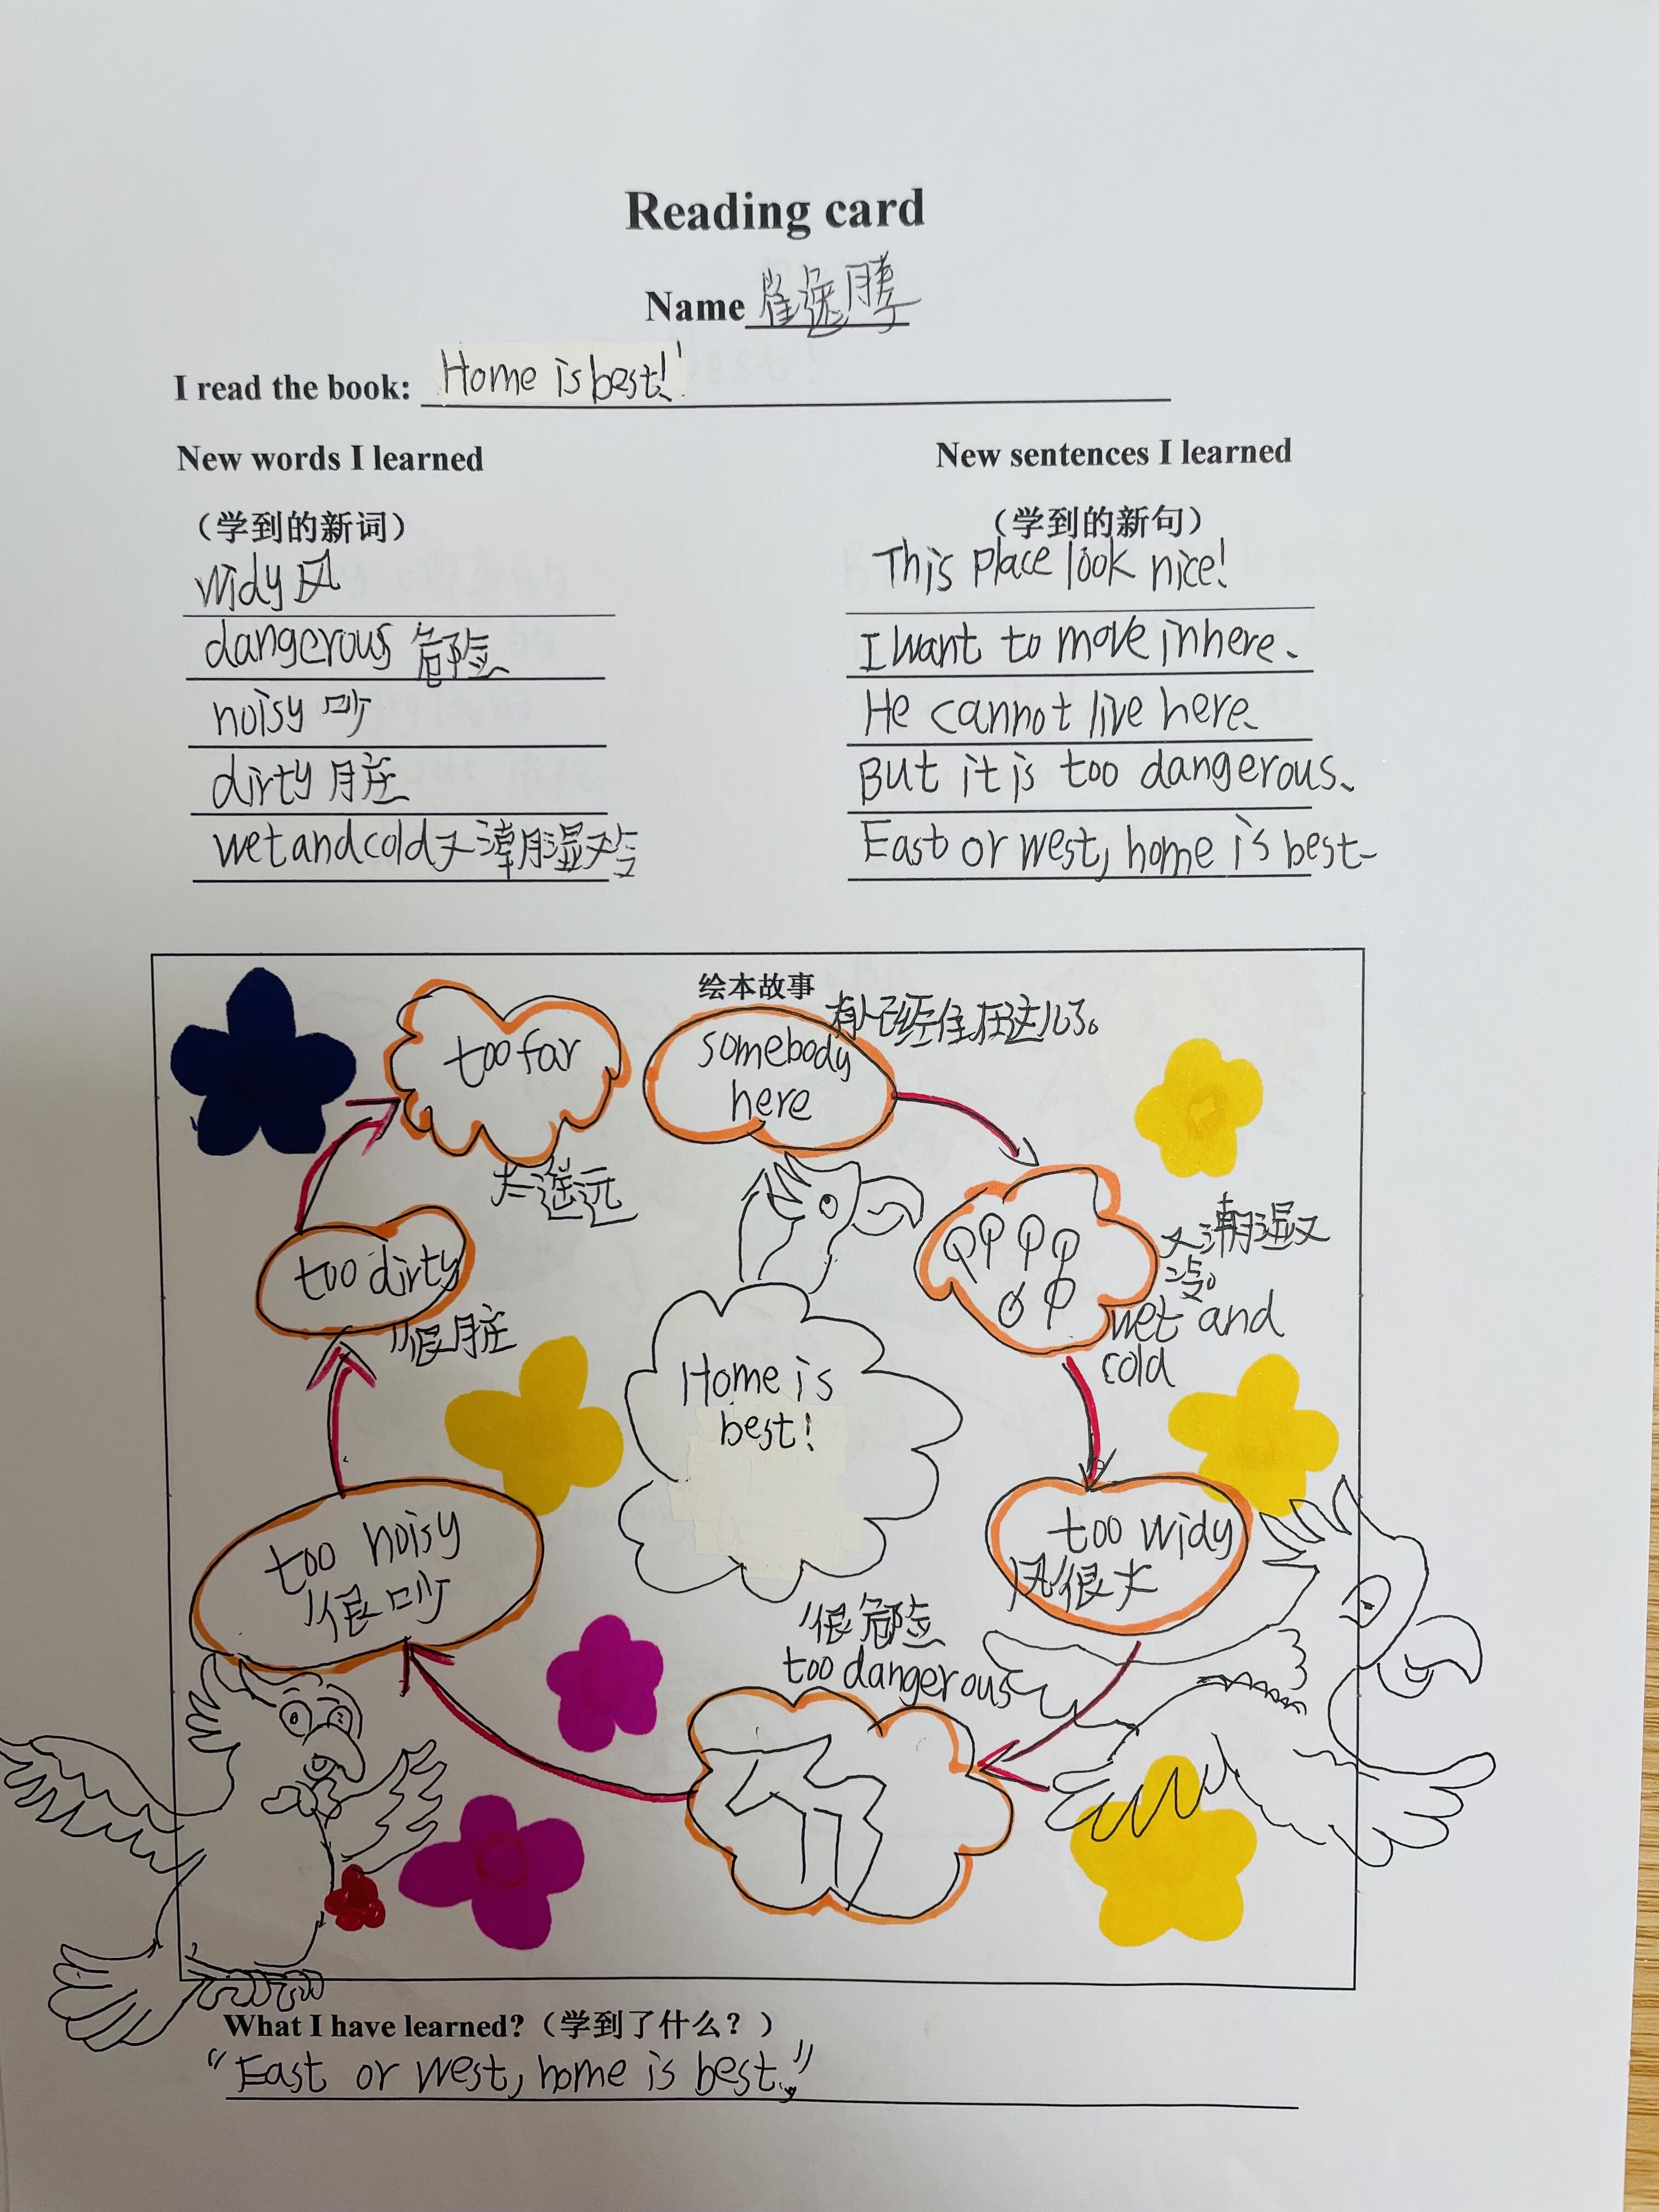 Reading card
Name 崔逸腾
I read the book: Home is best!
New words I learned
（学到的新词）
widy 风
dangerous 危险
noisy 吵
dirty 脏
wet and cold 又潮湿又冷
New sentences I learned
（学到的新句）
This place look nice!
I want to move in here.
He cannot live here.
But it is too dangerous.
East or west, home is best.
绘本故事
有人已经住在这儿了。
somebody
here
又潮湿又
冷。
wet and
cold
too widy
风很大
很危险
too dangerous
too noisy
很吵
too dirty
很脏
too far
太遥远
Home is
best!
What I have learned?（学到了什么？）
"East or west, home is best."